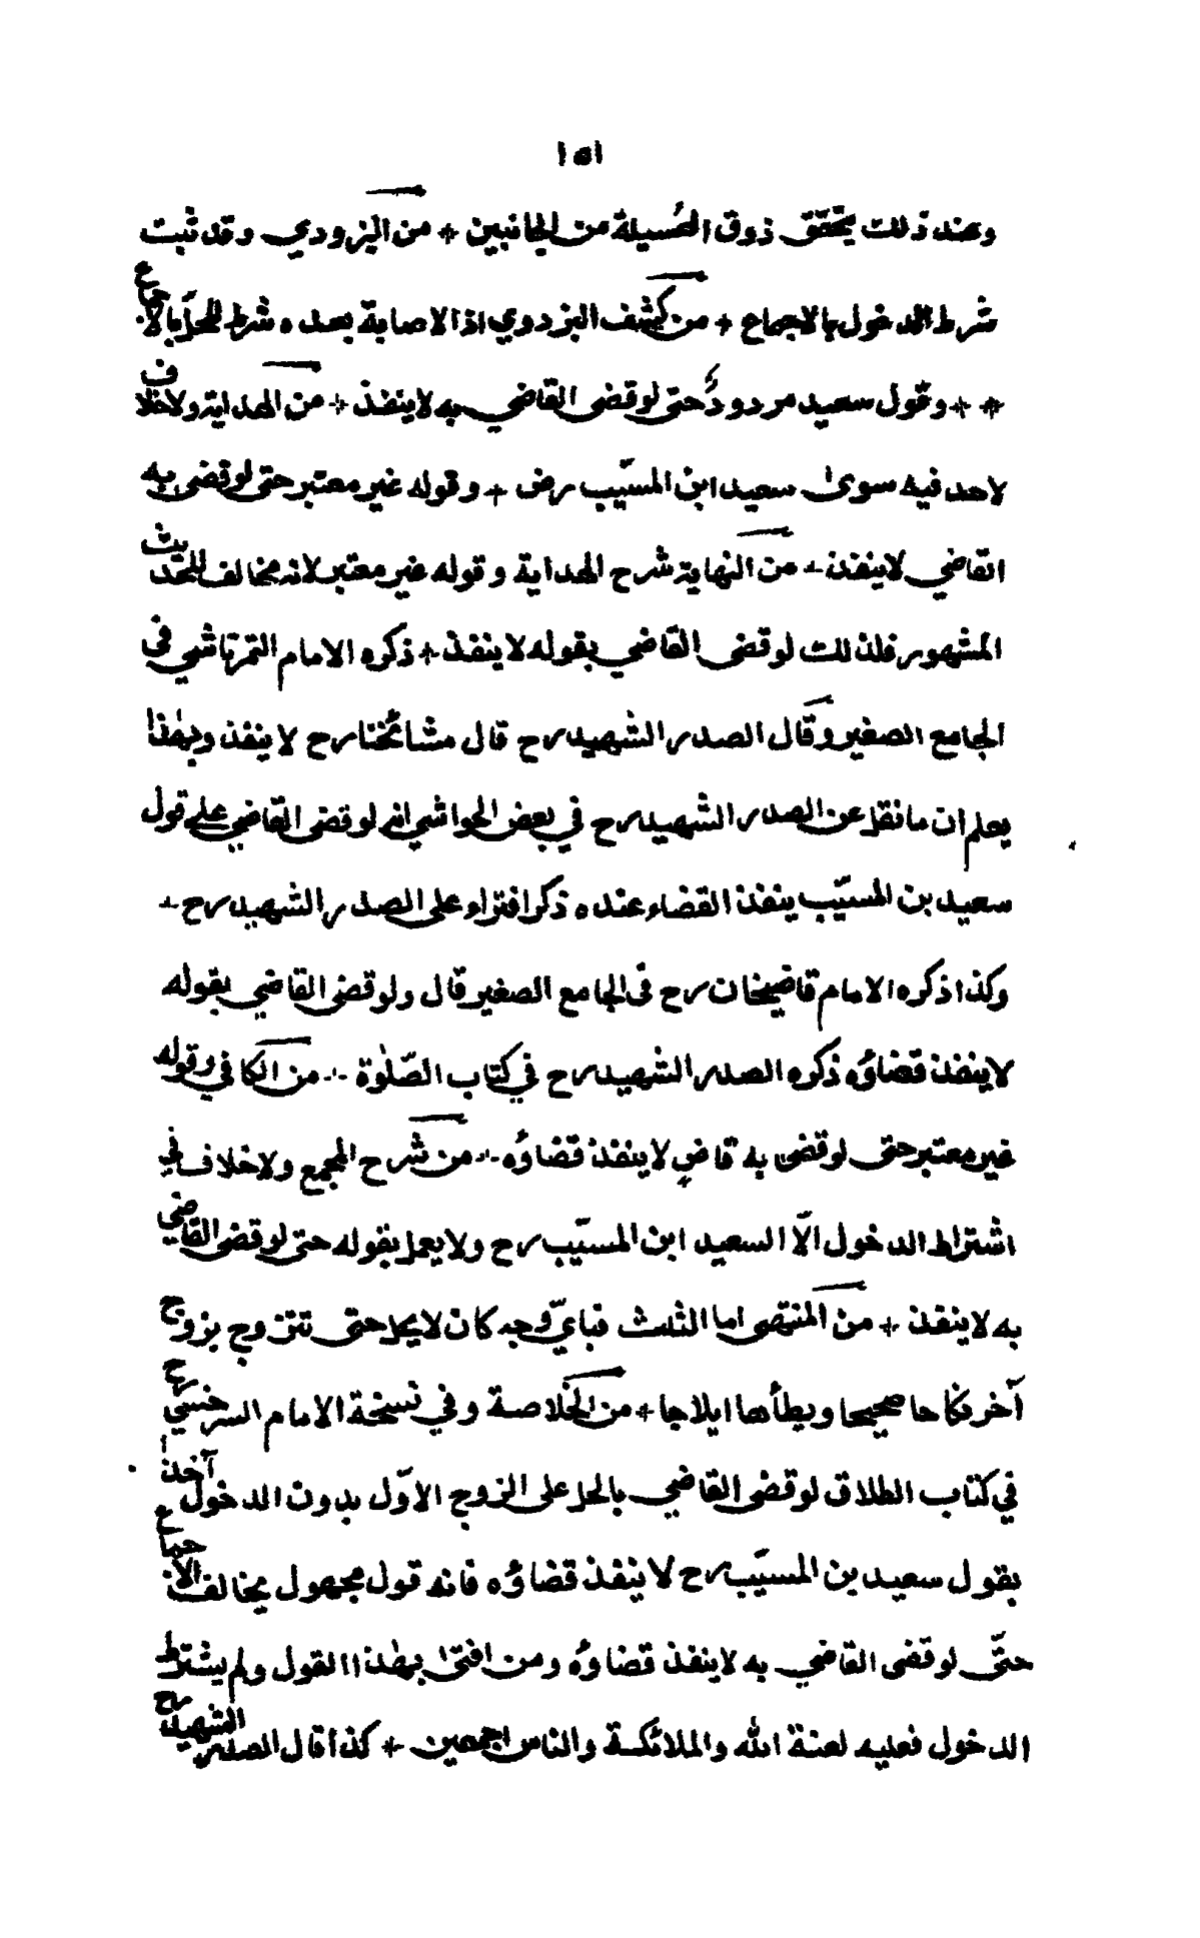 ١٥١
وعند ذلك يتحقق ذوق العسيلة من الجانبين + من البزودي وقد ثبت
شرط الدخول بالاجماع + من كشف البزدوي اذ الاصابة بعده شرط للحل بالاجماع
+ + وقول سعيد مردود حتى لو قضى القاضي به لا ينفذ + من الهداية ولا خلاف
لاحد فيه سوى سعيد ابن المسيّب رض + وقوله غير معتبر حتى لو قضى به
القاضي لا ينفذ + من النهاية شرح الهداية وقوله غير معتبر لانه مخالف للحديث
المشهور فلذلك لو قضى القاضي بقوله لا ينفذ + ذكره الامام التمرتاشي في
الجامع الصغير وقال الصدر الشهيد رح قال مشائخنا رح لا ينفذ وبهٰذا
يعلم ان ما نقل عن الصدر الشهيد رح في بعض الحواشي انه لو قضى القاضي على قول
سعيد بن المسيّب ينفذ القضاء عنده ذكر افتراء على الصدر الشهيد رح +
وكذا ذكره الامام قاضيخان رح في الجامع الصغير قال ولو قضى القاضي بقوله
لا ينفذ قضاؤه ذكره الصدر الشهيد رح في كتاب الصّلٰوة + من الكافي وقوله
غير معتبر حتى لو قضى به قاضٍ لا ينفذ قضاؤه + من شرح المجمع ولا خلاف في
اشتراط الدخول الّا السعيد ابن المسيّب رح ولا يعمل بقوله حتى لو قضى القاضي
به لا ينفذ + من المنتهى اما الثلث فباي وجه كان لا يحل حتى تتزوج بزوج
آخر نكاحا صحيحا ويطأها ايلاجا + من الخلاصة وفي نسخة الامام السرخسي رح
في كتاب الطلاق لو قضى القاضي بالحل على الزوج الاوّل بدون الدخول آخذا
بقول سعيد بن المسيّب رح لا ينفذ قضاؤه فانه قول مجهول مخالف الاجماع
حتّى لو قضى القاضي به لا ينفذ قضاؤه ومن افتى بهٰذا القول ولم يشترط
الدخول فعليه لعنة الله والملائكة والناس اجمعين + كذا قال الصدر الشهيد رح